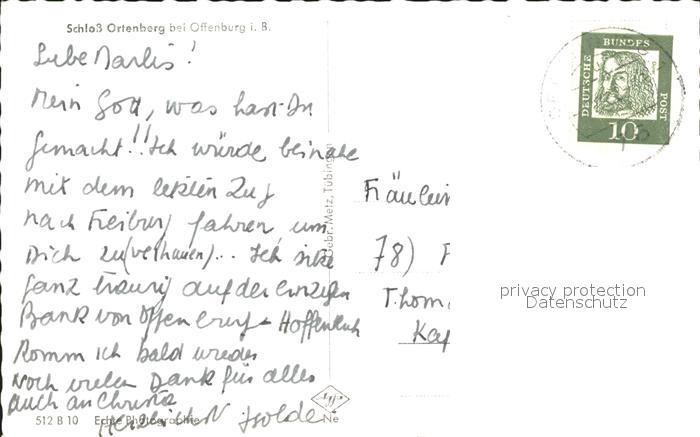 Schloß Ortenberg bei Offenburg i. B.
Liebe Marlis!
Mein Gott, was hast Du
gemacht!! Ich würde beinahe
mit dem letzten Zug
nach Freiburg fahren um
Dich zu (verhauen)... Ich sitze
ganz traurig auf der einzigen
Bank von Offenburg - Hoffentlich
komm ich bald wieder
Noch vielen Dank für alles
auch an Christa
Herzlichst Isolde
512 B 10 Echte Photographie
Gebr. Metz, Tübingen
Agfa
Ne
DEUTSCHE BUNDES POST
10
Fräulein
78) F
Thom
Kap
privacy protection
Datenschutz